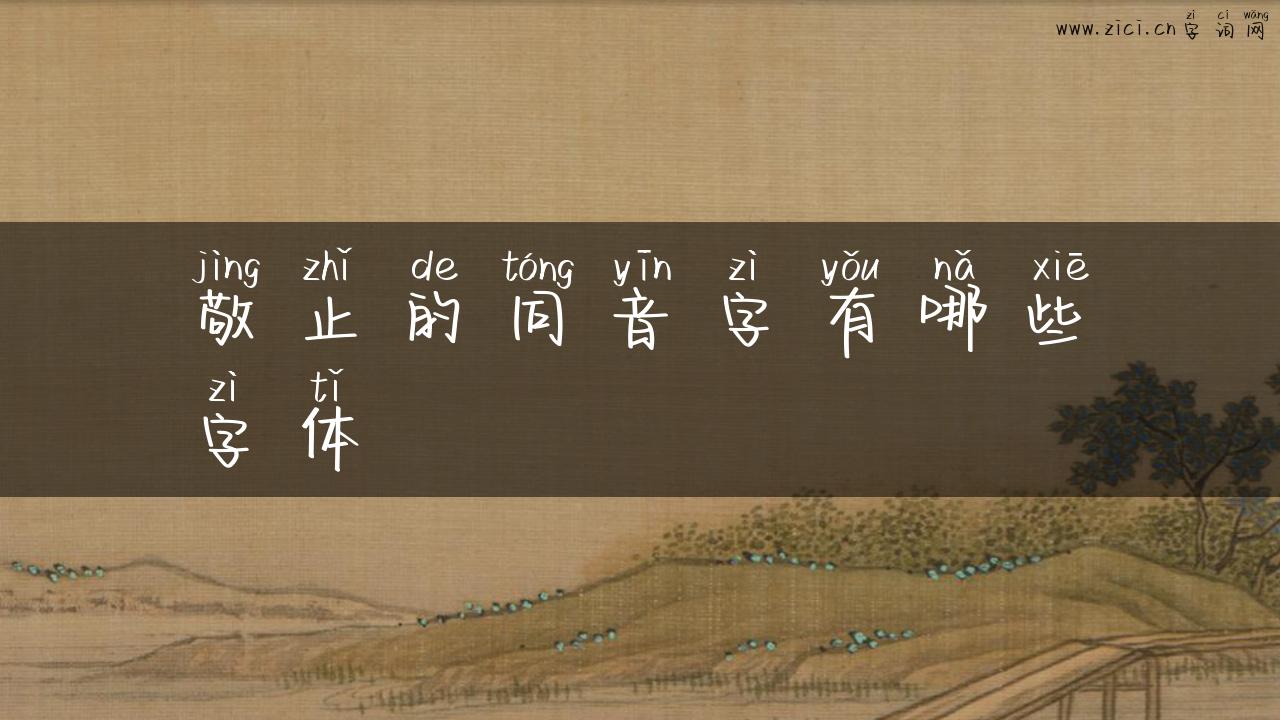 zì cí wǎng
www.zici.cn 字词网
jìng zhǐ de tóng yīn zì yǒu nǎ xiē
敬止的同音字有哪些
zì tǐ
字体